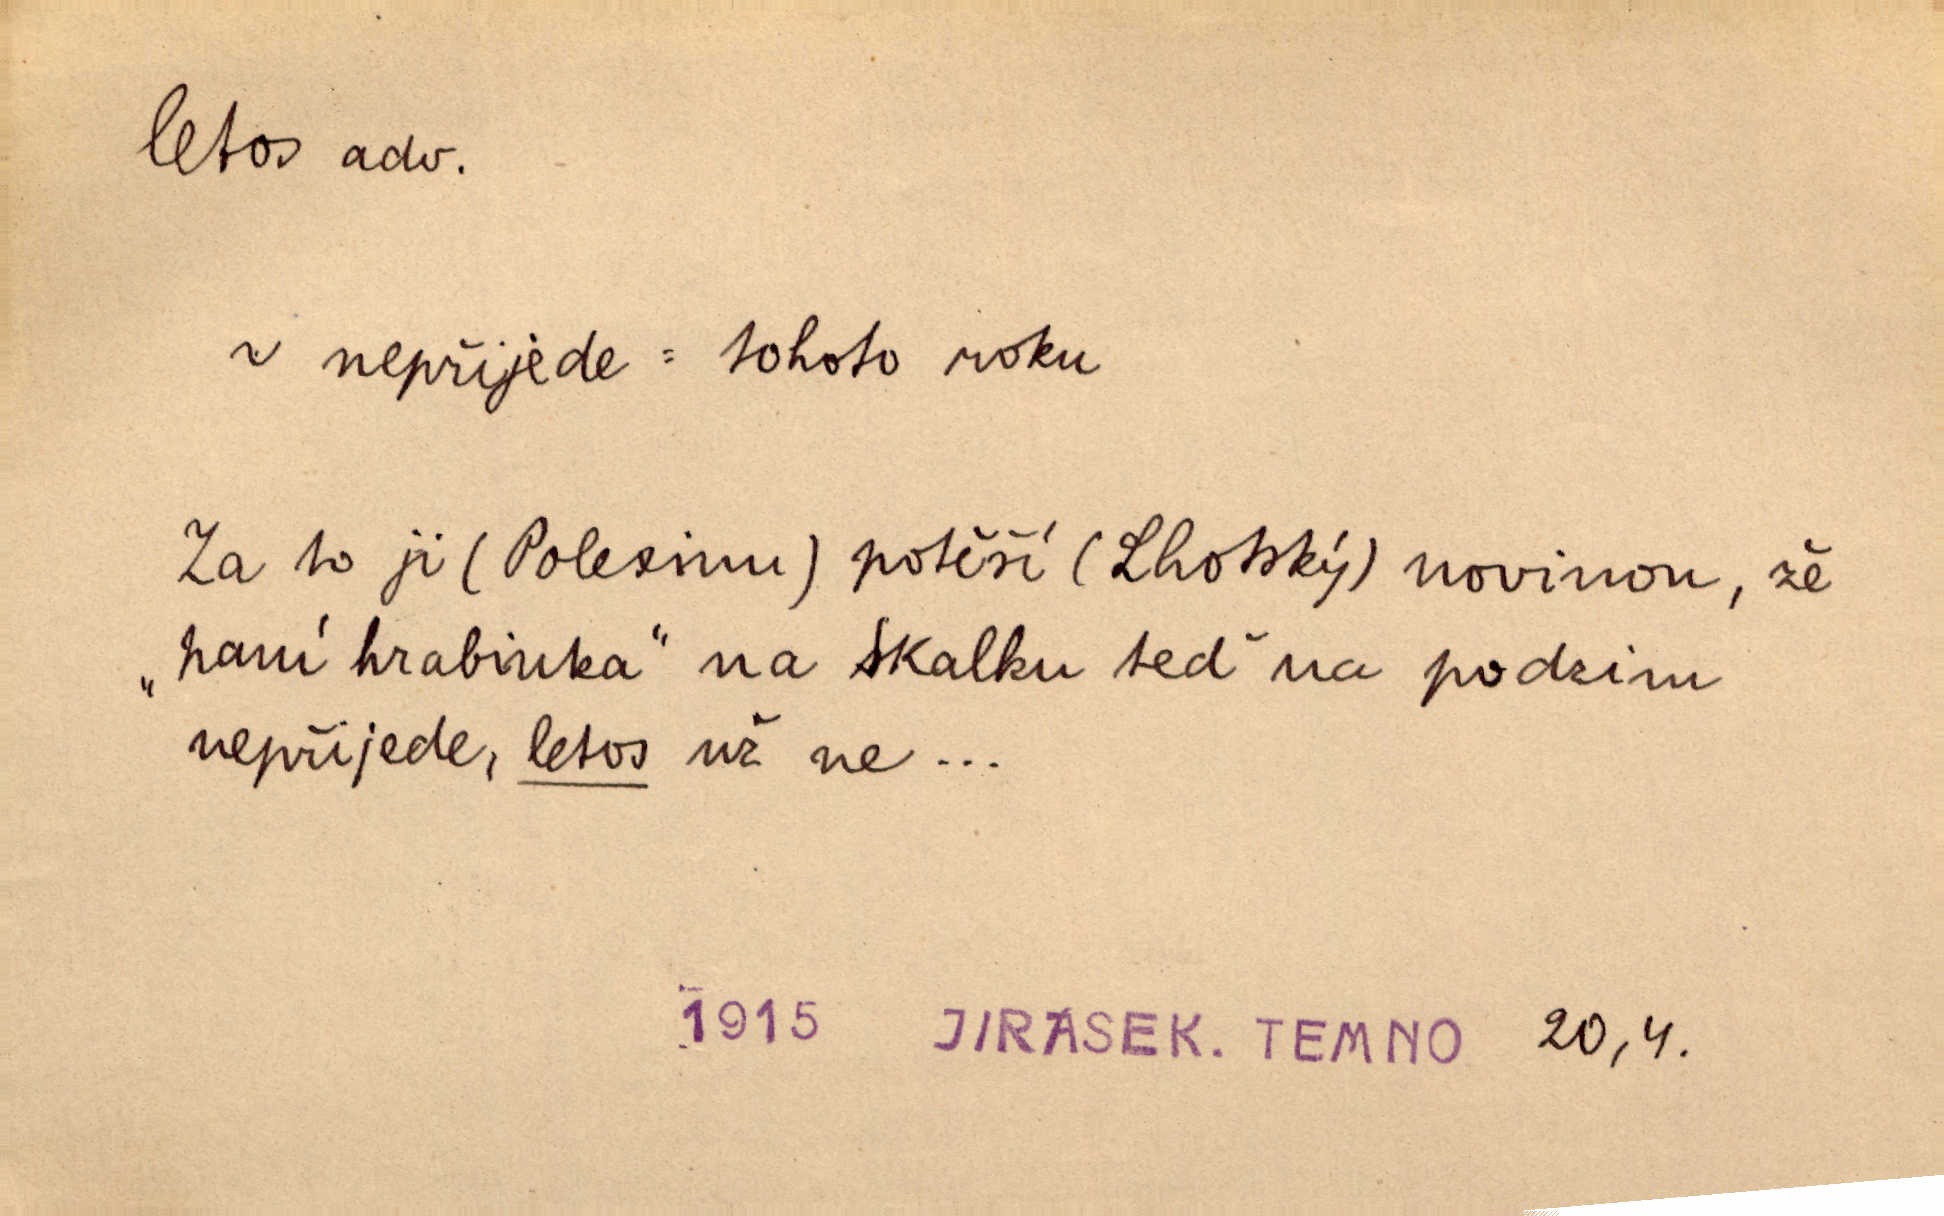 letos adv.
~ nepřijede = tohoto roku
Za to ji (Polexinu) potěší (Lhotský) novinou, že
„paní hrabinka“ na Skalku teď na podzim
nepřijede, letos už ne ...
1915 JIRASEK. TEMNO 20,4.